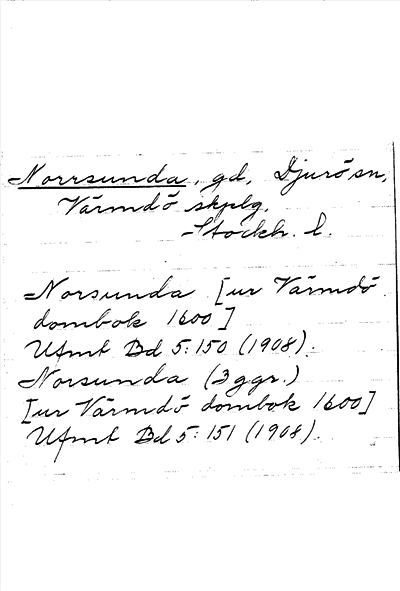 Norrsunda, gd, Djurö sn,
Värmdö skplg.
Stockh. l.
Norsunda [ur Värmdö
dombok 1600]
Ufmt Bd 5:150 (1908).
Norsunda (3 ggr.)
[ur Värmdö dombok 1600]
Ufmt Bd 5:151 (1908).